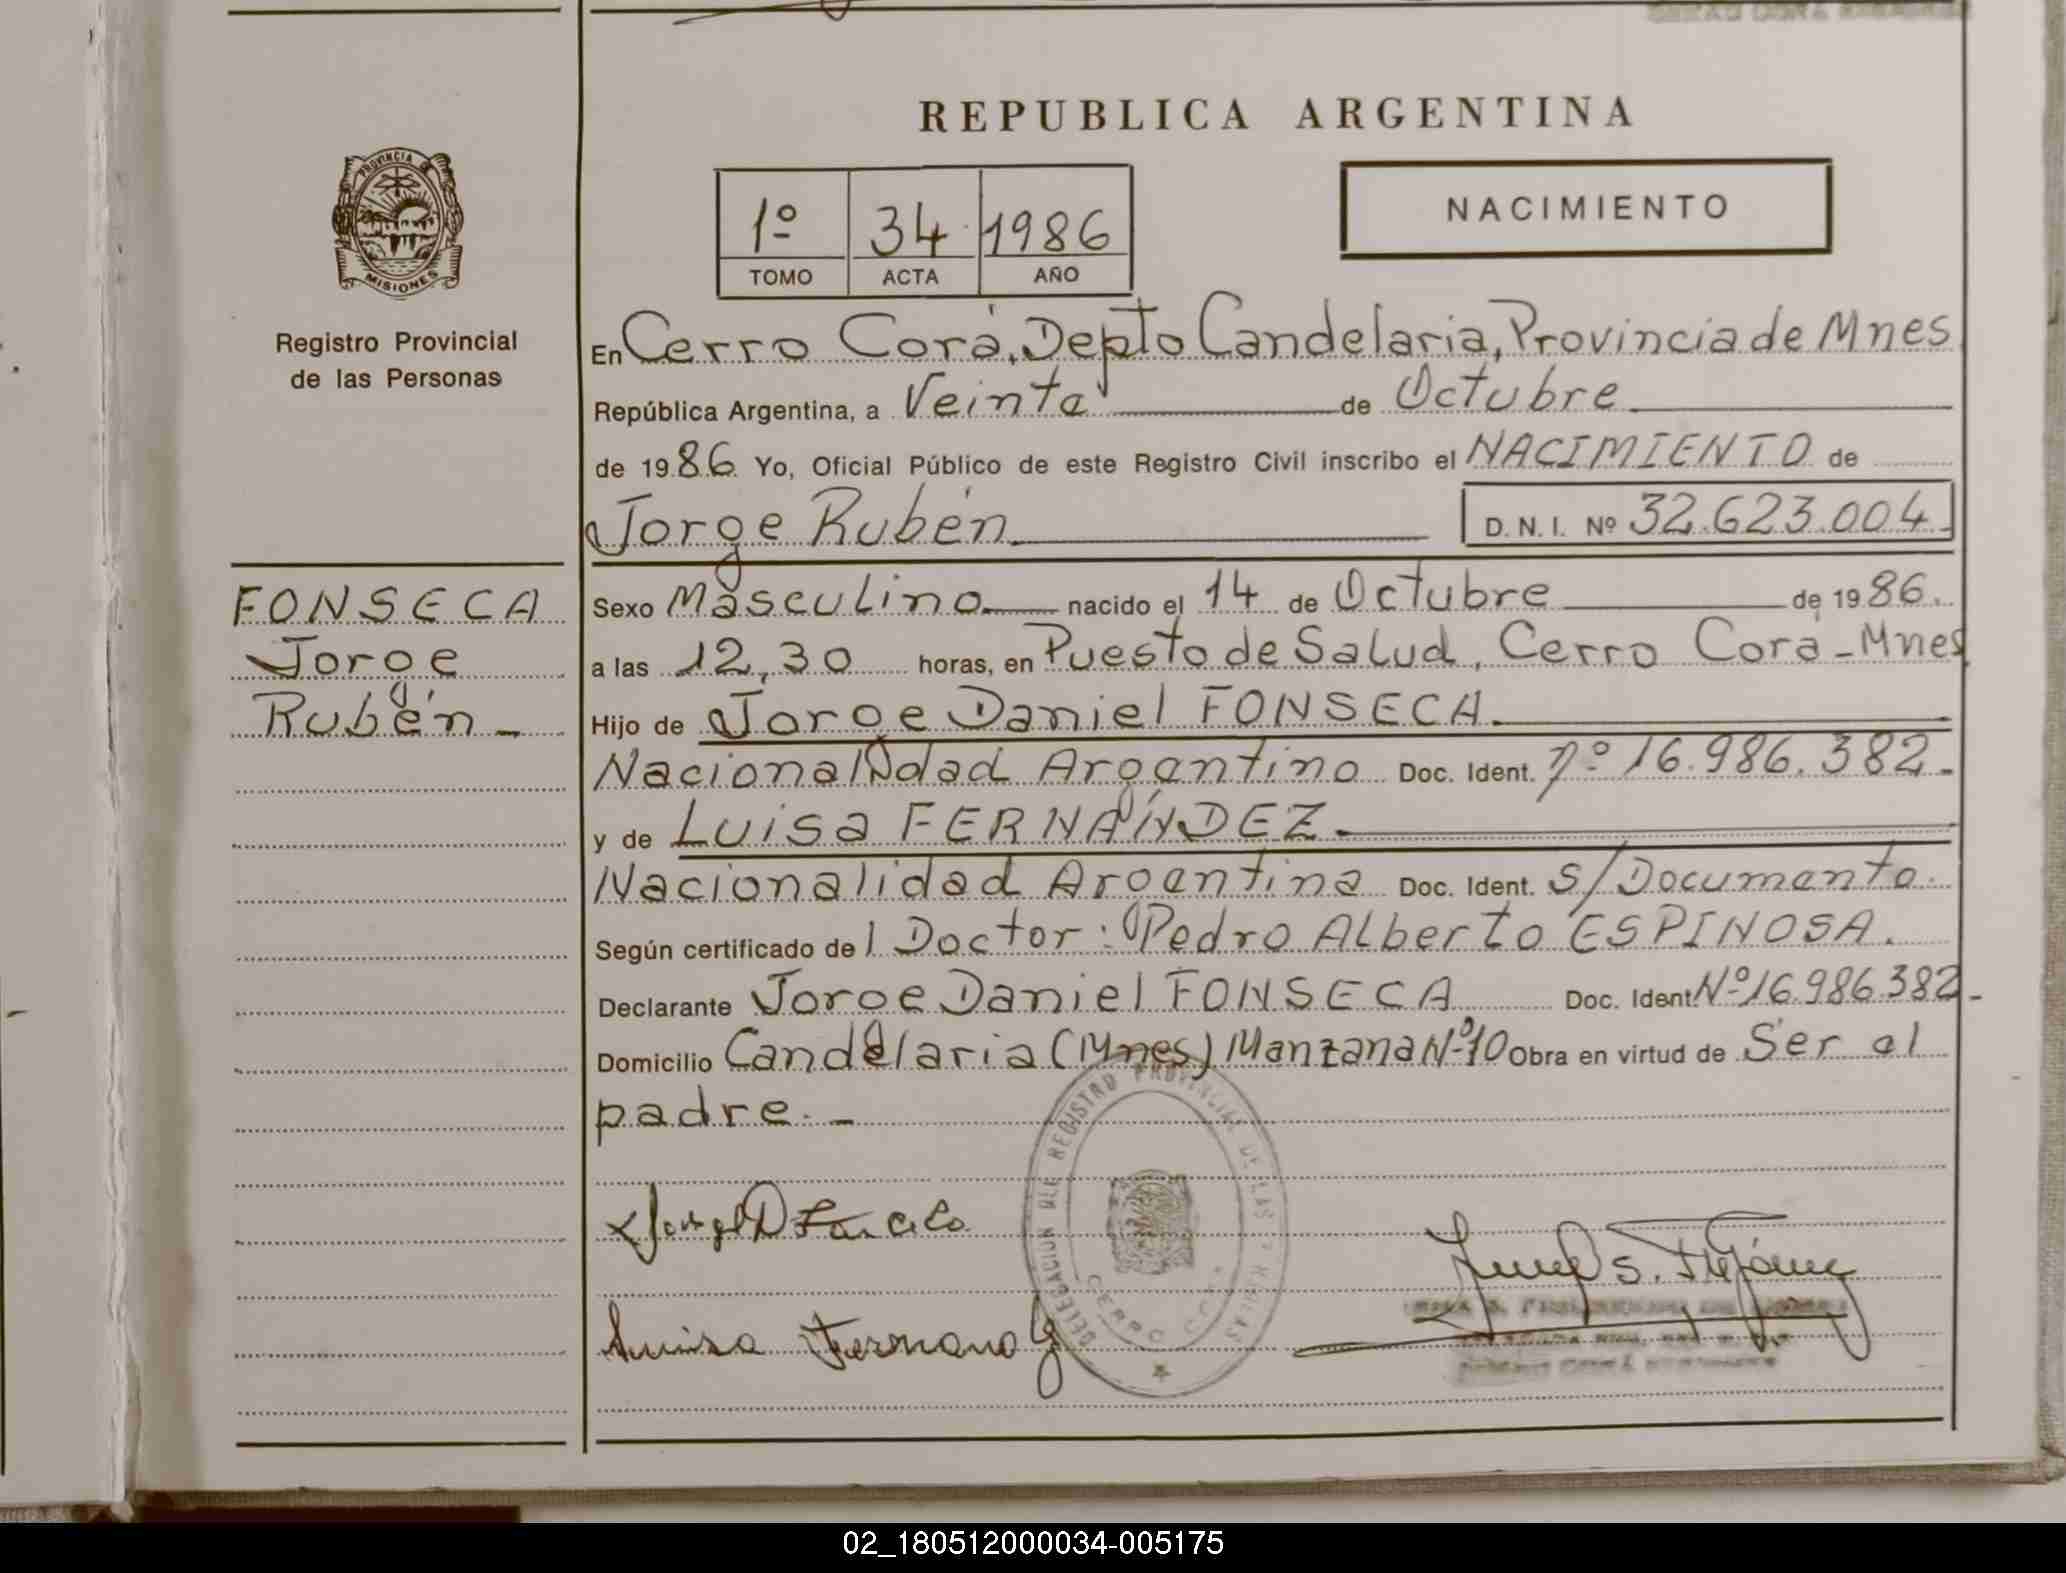 REPUBLICA ARGENTINA
PROVINCIA DE
MISIONES
Registro Provincial
de las Personas
1º 34 1986
TOMO ACTA AÑO
NACIMIENTO
En Cerro Corá, Depto Candelaria, Provincia de Mnes
República Argentina, a Veinte de Octubre
de 1986. Yo, Oficial Público de este Registro Civil inscribo el NACIMIENTO de
Jorge Rubén D. N. I. Nº 32.623.004
FONSECA
Jorge
Rubén
Sexo Masculino nacido el 14 de Octubre de 1986.
a las 12,30 horas, en Puesto de Salud, Cerro Corá - Mnes
Hijo de Jorge Daniel FONSECA.
Nacionalidad Argentino Doc. Ident. nº 16.986.382.
y de Luisa FERNÁNDEZ
Nacionalidad Argentina Doc. Ident. S/Documento.
Según certificado del Doctor: Pedro Alberto ESPINOSA.
Declarante Jorge Daniel FONSECA Doc. Ident. Nº 16.986.382
Domicilio Candelaria (Mnes) Manzana Nº 10 Obra en virtud de Ser el
padre. -
DELEGACION DEL REGISTRO PROVINCIAL DE LAS PERSONAS
CERRO CORA
Luisa
02_180512000034-005175